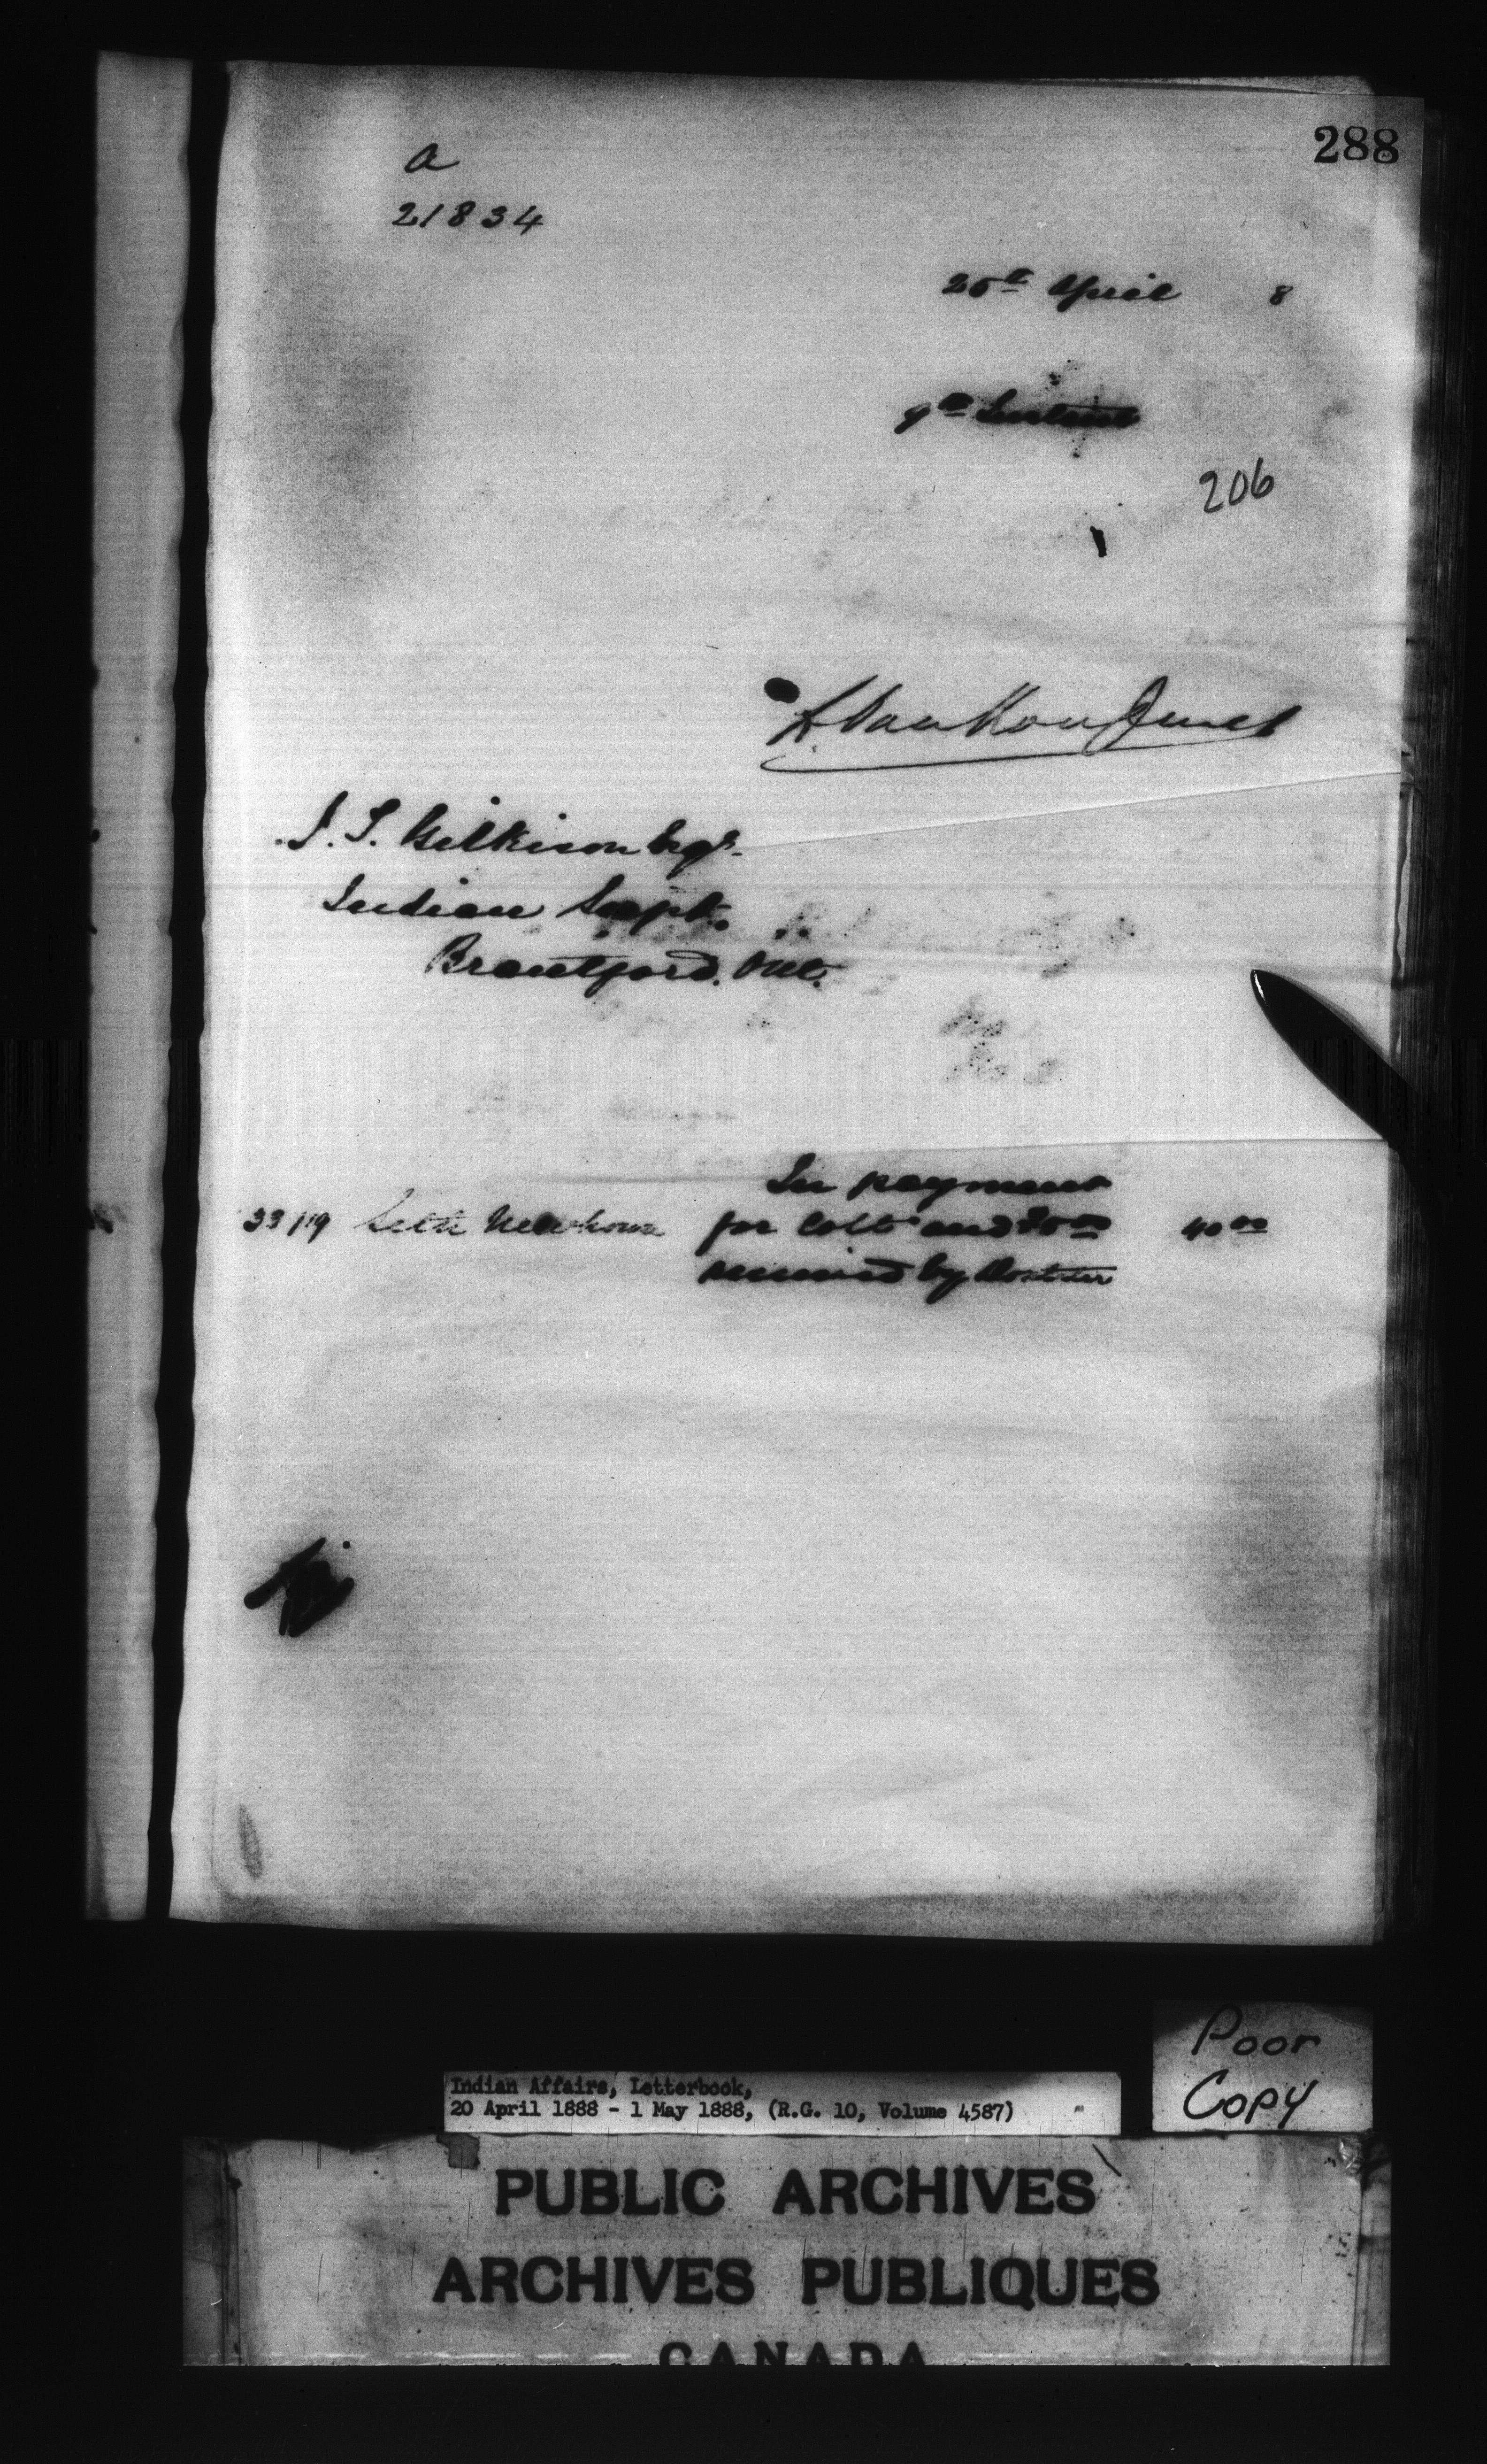 288
a
21834
25th April 8
9th Instant
206
L. VanKoughnet
J. T. Gilkison Esqr.
Indian Supt.
Brantford. Ont.
In payment
33/19 Seth Newhouse for colt and 40 00
received by
Poor
Copy
Indian Affairs, Letterbook,
20 April 1888 - 1 May 1888, (R.G. 10, Volume 4587)
PUBLIC ARCHIVES
ARCHIVES PUBLIQUES
CANADA